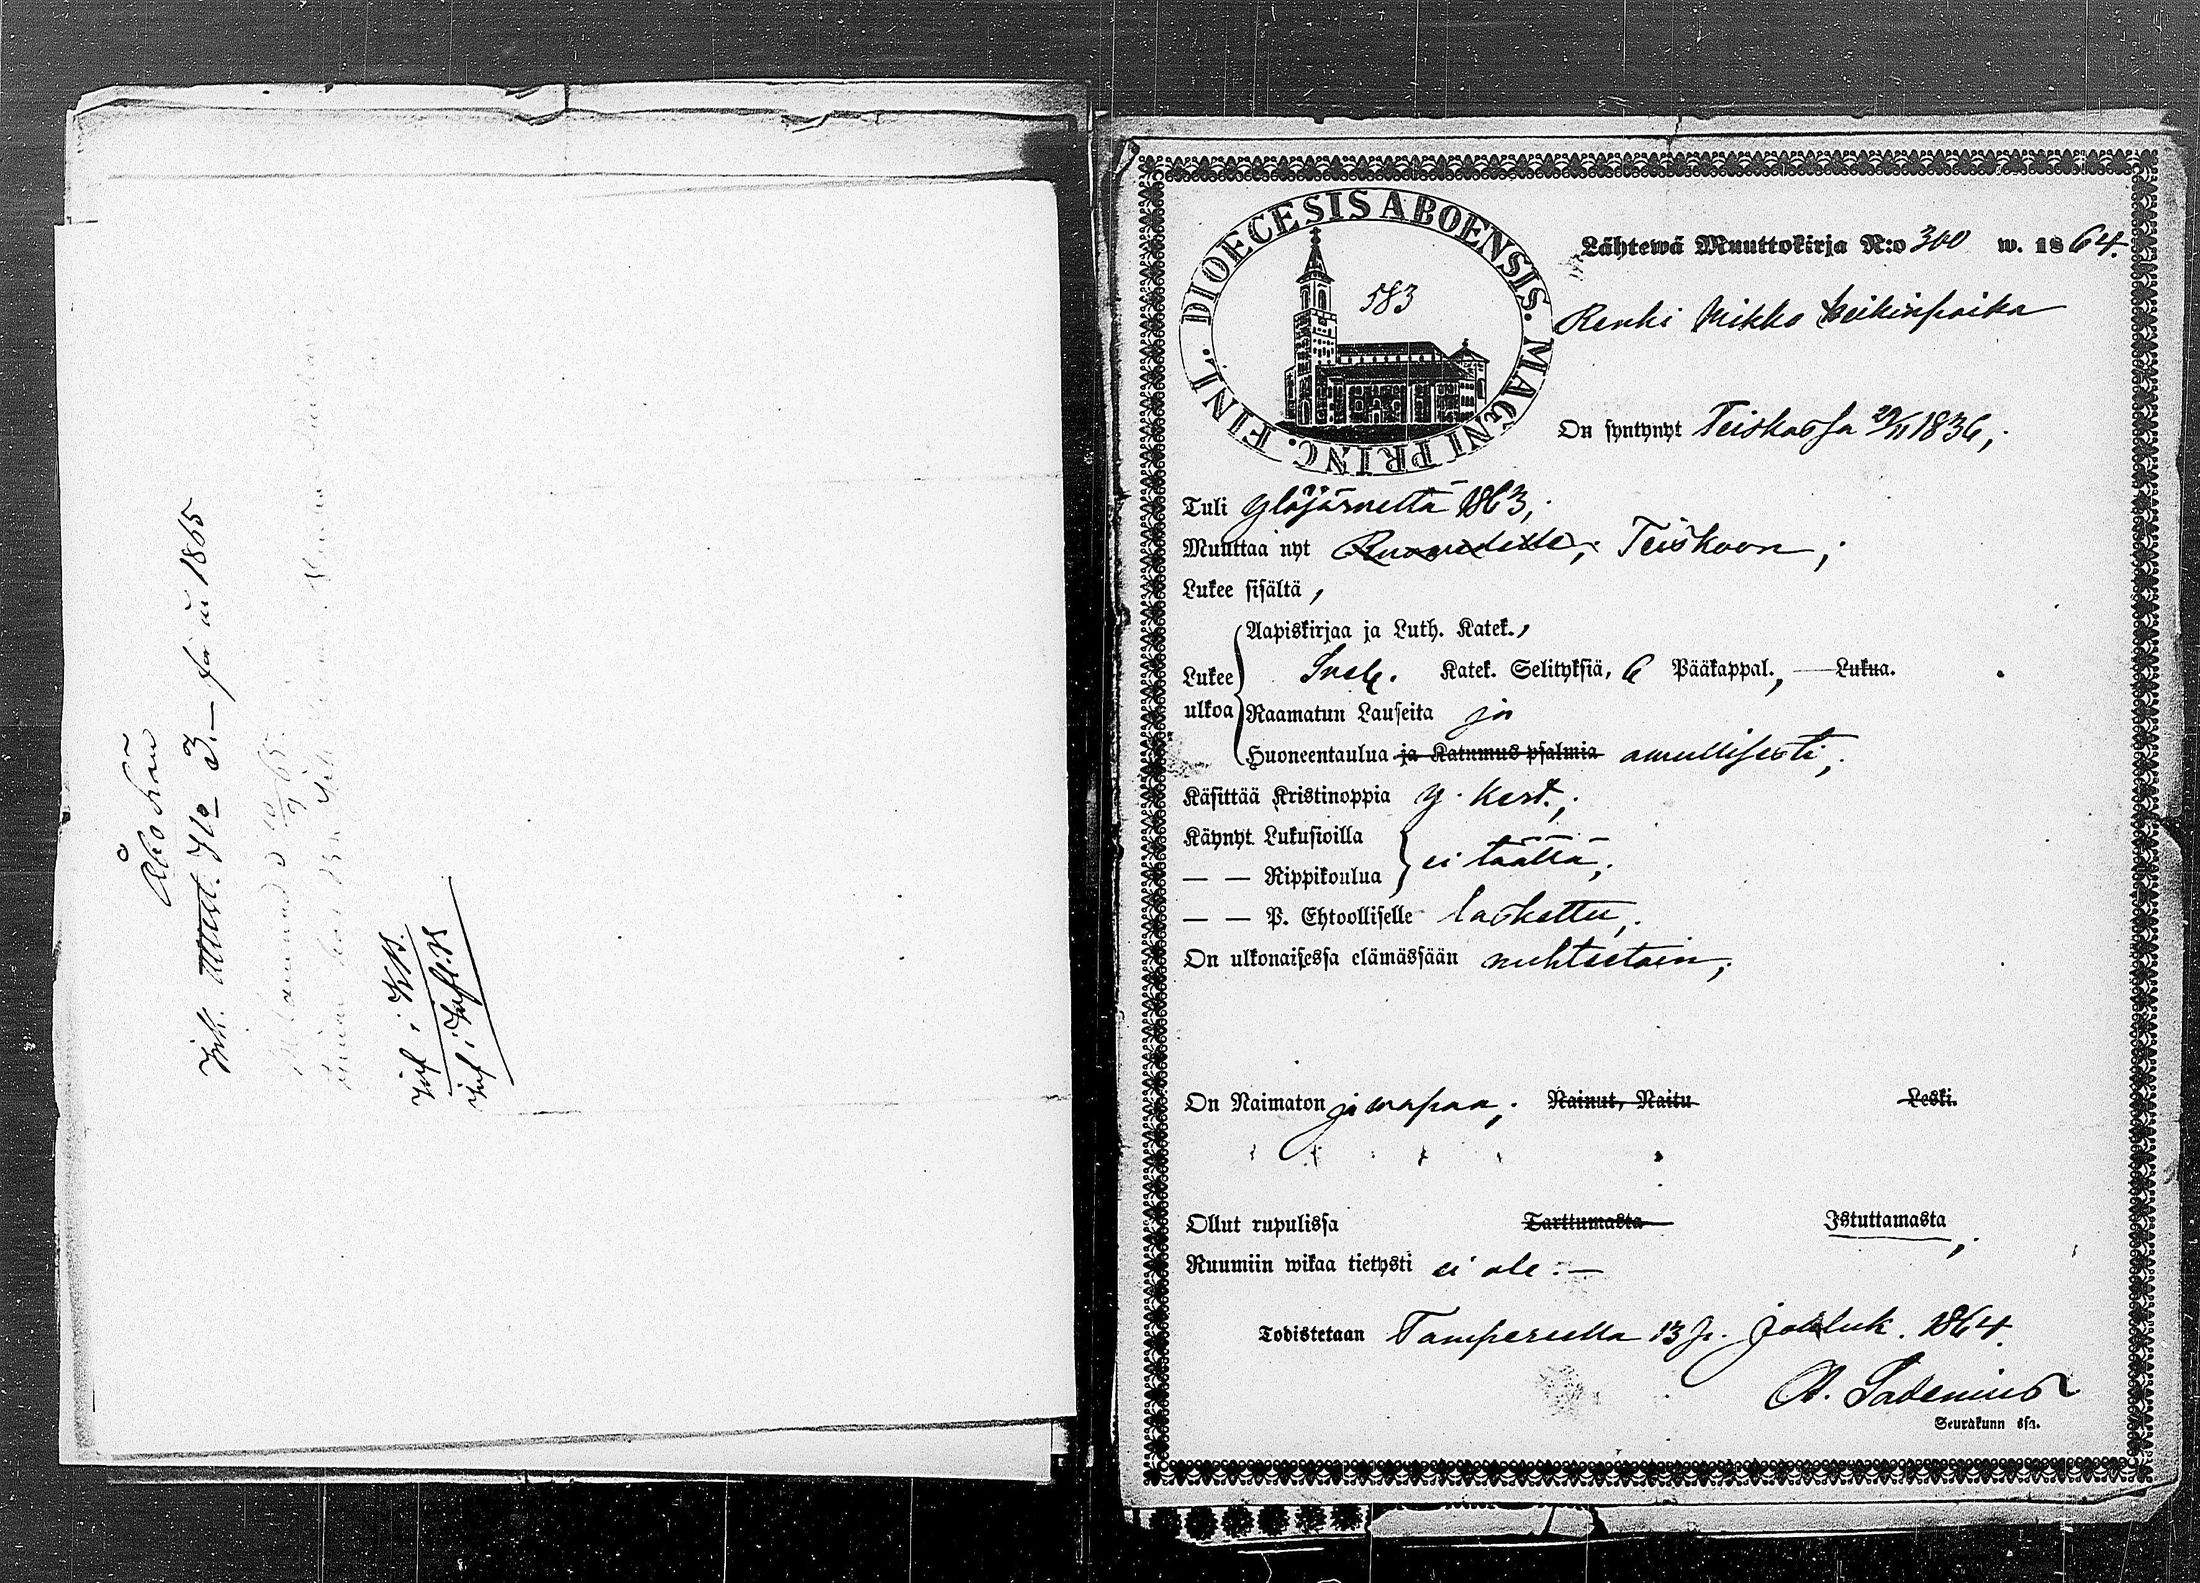 Åbo län
Ink. Attest. N:o 3. för år 1865
Inf i KB.
Inf i Infl. B
DIOECESIS ABOENSIS. MAGNI PRINC. FINL.
583
Lähtewä Muuttokirja N:o 300 w. 1864.
Renki Mikko Heikinpoika
On syntynyt Teiskossa 29/11 1836,
Tuli Ylöjärveltä 1863,
Muuttaa nyt Ruovedelle, Teiskoon,
Lukee sisältä,
Lukee ulkoa
Aapiskirjaa ja Luth. Katek.,
Sveb. Katek. Selityksiä, 6 Pääkappal., — Lukua.
Raamatun Lauseita ja
Huoneentaulua ja Katumus psalmia awullisesti,
Käsittää Kristinoppia y. kert.,
Käynyt Lukusioilla
— — Rippikoulua ei täältä,
— — P. Ehtoolliselle laskettu,
On ulkonaisessa elämässään nuhteetoin,
On Naimaton ja wapaa, Nainut, Naitu Leski.
Ollut rupulissa Tarttumasta Istuttamasta,
Ruumiin wikaa tietysti ei ole. —
Todistetaan Tampereella 13 p. Jouluk. 1864.
A. Sadenius
Seurakunn